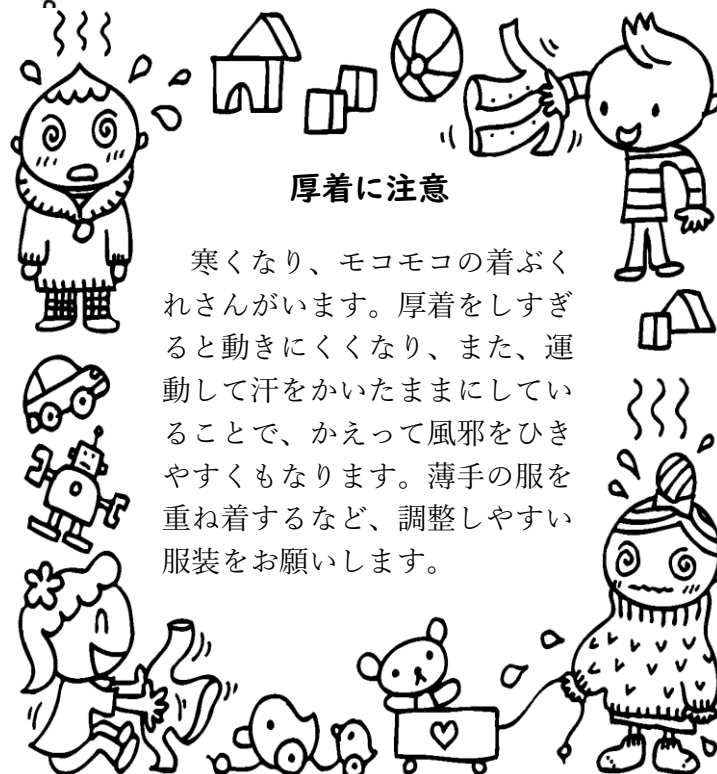 厚着に注意
寒くなり、モコモコの着ぶく
れさんがいます。厚着をしすぎ
ると動きにくくなり、また、運
動して汗をかいたままにしてい
ることで、かえって風邪をひき
やすくもなります。薄手の服を
重ね着するなど、調整しやすい
服装をお願いします。